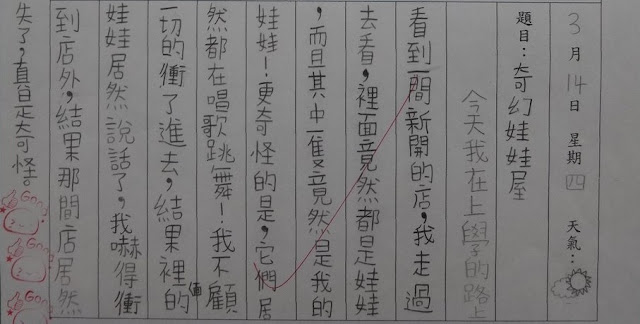 3月14日 星期四 天氣：
題目：奇幻娃娃屋
今天我在上學的路上
看到一間新開的店，我走過
去看，裡面竟然都是娃娃
，而且其中一隻竟然是我的
娃娃！更奇怪的是，它們居
然都在唱歌跳舞！我不顧
一切的衝了進去，結果裡面的
娃娃居然說話了，我嚇得衝
到店外，結果那間店居然
失了，真是奇怪。
Goo
Goo
Goo